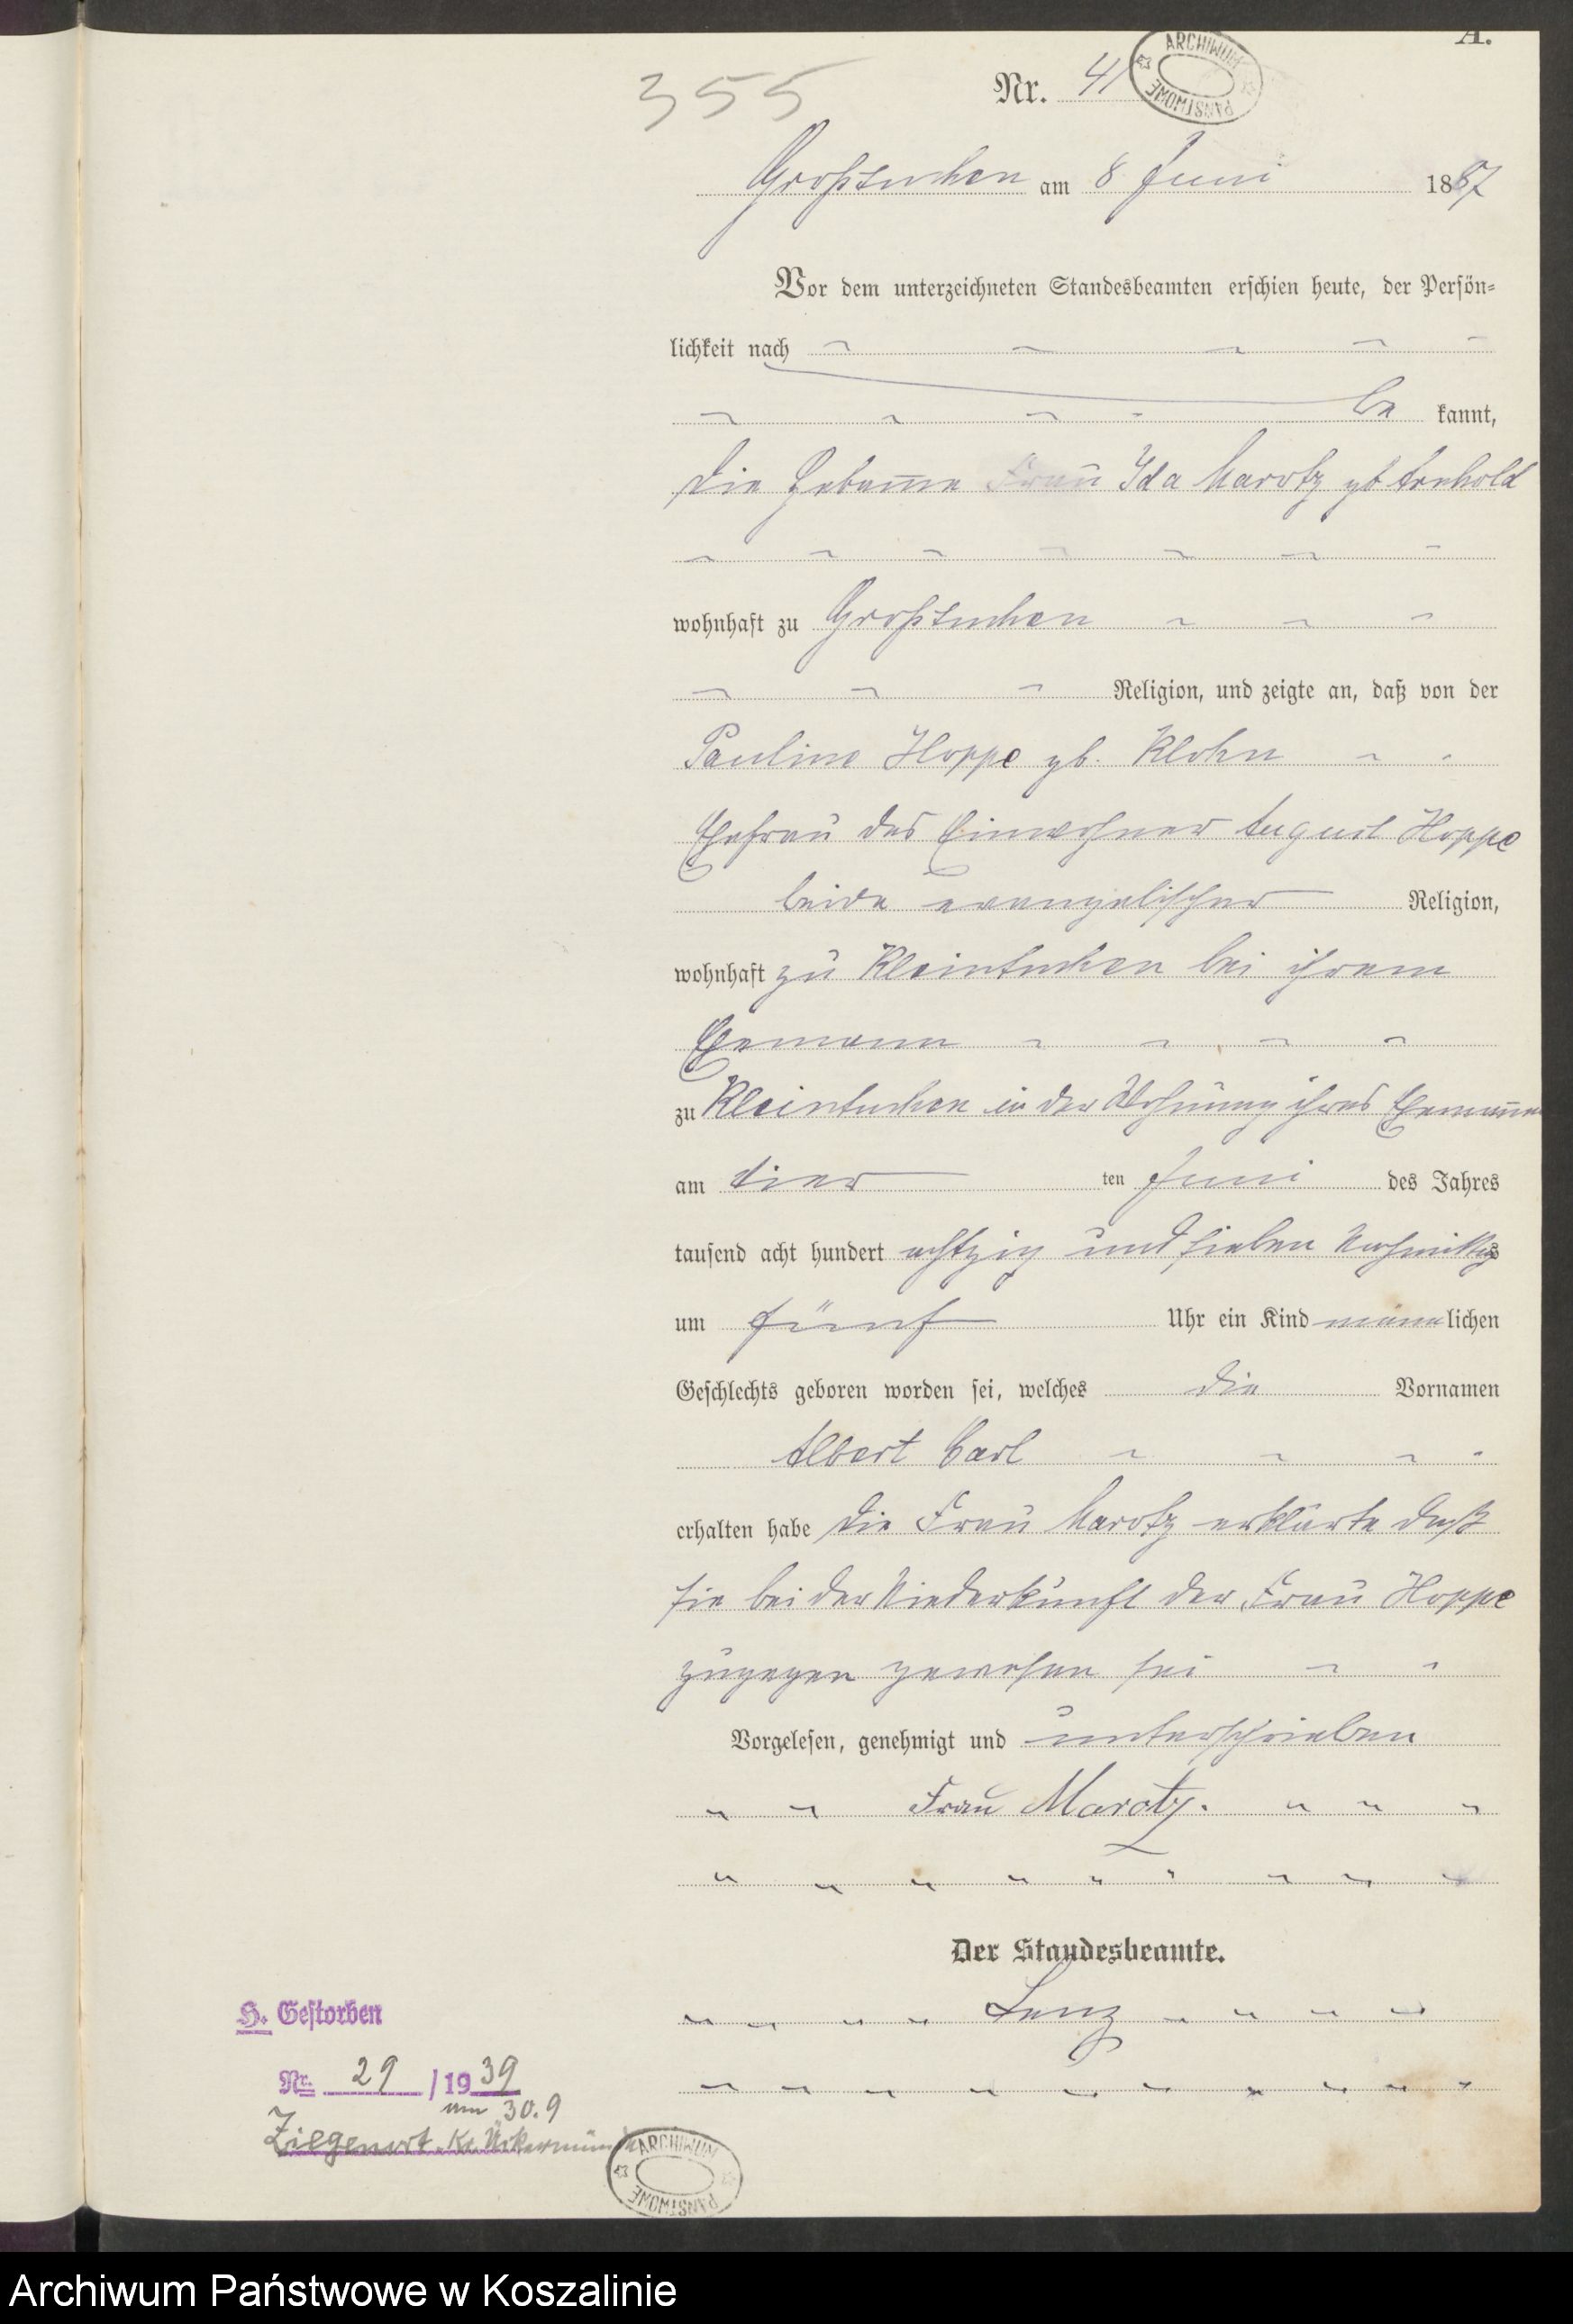 A.
355
Nr. 41
ARCHIWUM PAŃSTWOWE
Großtuchen am 8 Juni 1887
Vor dem unterzeichneten Standesbeamten erschien heute, der Persön-
lichkeit nach
be kannt,
die Hebamme Frau Ida Marotz gb Arnhold
wohnhaft zu Großtuchen
Religion, und zeigte an, daß von der
Pauline Hoppe gb. Klohn
Ehefrau des Einwohner August Hoppe
beide evangelischer Religion,
wohnhaft zu Kleintuchen bei ihrem
Ehemann
zu Kleintuchen in der Wohnung ihres Ehemannes
am vier ten Juni des Jahres
tausend acht hundert achtzig und sieben Nachmittags
um fünf Uhr ein Kind männlichen
Geschlechts geboren worden sei, welches die Vornamen
Albert Carl
erhalten habe die Frau Marotz erklärte daß
sie bei der Niederkunft der Frau Hoppe
zugegen gewesen sei
Vorgelesen, genehmigt und unterschrieben
Frau Marotz.
Der Standesbeamte.
Lenz
H. Gestorben
Nr. 29 / 1939
am 30.9
Ziegenort Kr. Ückermünde
ARCHIWUM PAŃSTWOWE
Archiwum Państwowe w Koszalinie